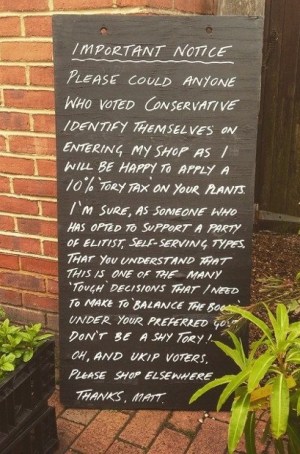 IMPORTANT NOTICE
PLEASE COULD ANYONE
WHO VOTED CONSERVATIVE
IDENTIFY THEMSELVES ON
ENTERING MY SHOP AS I
WILL BE HAPPY TO APPLY A
10% TORY TAX ON YOUR PLANTS
I'M SURE, AS SOMEONE WHO
HAS OPTED TO SUPPORT A PARTY
OF ELITIST, SELF-SERVING TYPES,
THAT YOU UNDERSTAND THAT
THIS IS ONE OF THE MANY
'TOUGH' DECISIONS THAT I NEED
TO MAKE TO 'BALANCE THE
UNDER YOUR PREFERRED
DON'T BE A SHY TORY!
OH, AND UKIP VOTERS,
PLEASE SHOP ELSEWHERE
THANKS, MATT.